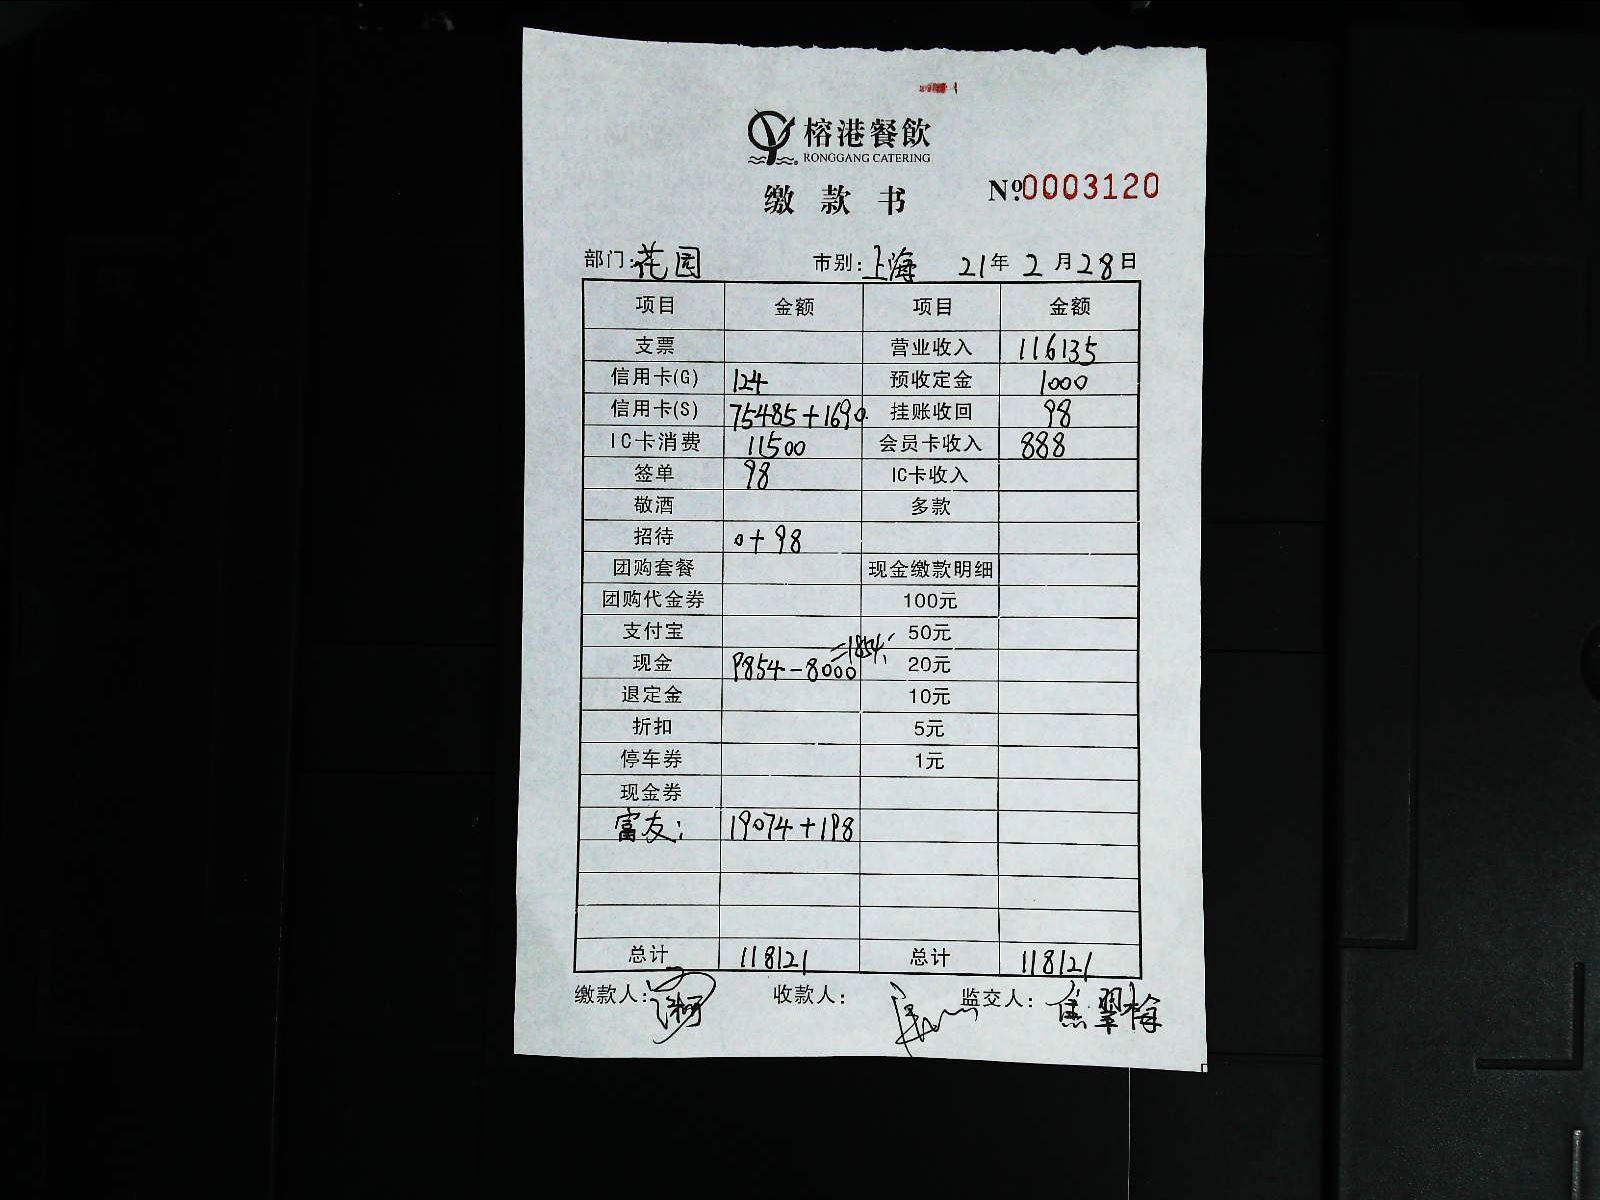 榕港餐飲
RONGGANG CATERING
缴款书
№0003120
部门:花园 市别:上海 21年2月28日
项目 金额 项目 金额
支票 营业收入 116135
信用卡(G) 124 预收定金 1000
信用卡(S) 75485+1690 挂账收回 98
IC卡消费 11500 会员卡收入 888
签单 98 IC卡收入
敬酒 多款
招待 0+98
团购套餐 现金缴款明细
团购代金券 100元
支付宝 50元
现金 9854-8000=1854 20元
退定金 10元
折扣 5元
停车券 1元
现金券
富友: 19074+198
总计 118121 总计 118121
缴款人: 收款人: 监交人:焦翠榆